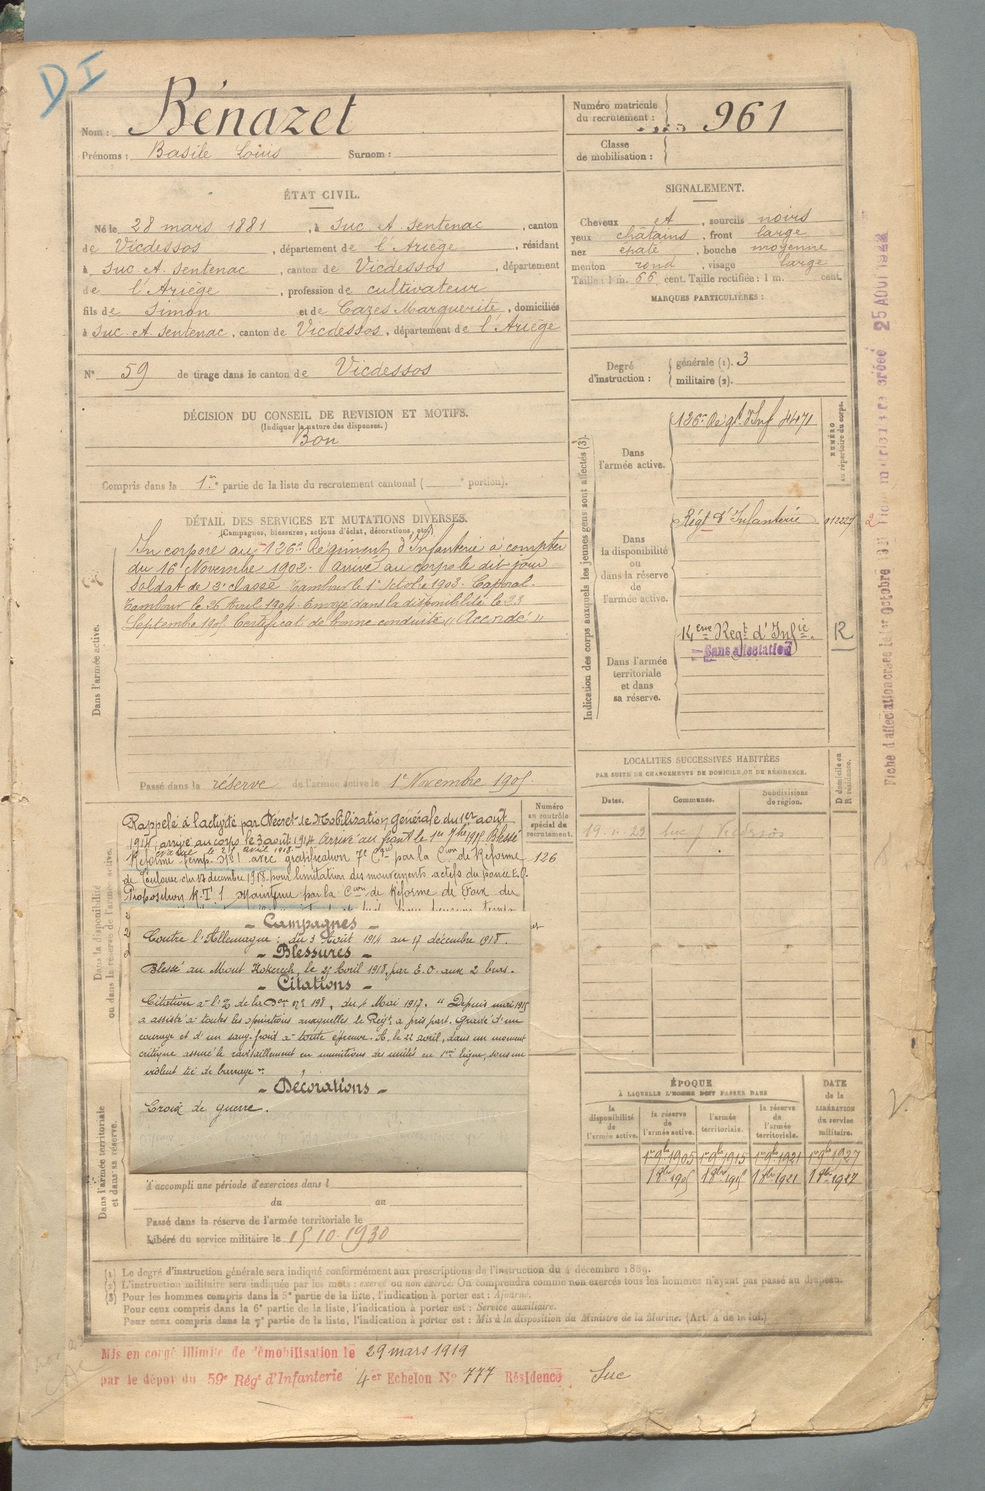 DI
Nom : Bénazet
Prénoms : Basile Loius Surnom :
Numéro matricule du recrutement : 961
Classe de mobilisation :
ÉTAT CIVIL.
Né le 28 mars 1881, à Suc et Sentenac, canton
de Vicdessos, département de l'Ariège, résidant
à Suc et Sentenac, canton de Vicdessos, département
de l'Ariège, profession de cultivateur
fils de Simon et de Cazes Marguerite, domiciliés
à Suc et Sentenac, canton de Vicdessos, département de l'Ariège
N° 59 de tirage dans le canton de Vicdessos
SIGNALEMENT.
Cheveux et, sourcils noirs
yeux châtains, front large
nez épaté, bouche moyenne
menton rond, visage large
Taille : 1 m. 66 cent. Taille rectifiée : 1 m. cent.
MARQUES PARTICULIÈRES :
Degré d'instruction : générale (1). 3
militaire (2).
DÉCISION DU CONSEIL DE REVISION ET MOTIFS.
(Indiquer la nature des dispenses.)
Bon
Compris dans la 1re partie de la liste du recrutement cantonal ( e portion).
DÉTAIL DES SERVICES ET MUTATIONS DIVERSES.
(Campagnes, blessures, actions d'éclat, décorations, etc.)
Dans l'armée active.
Incorporé au 126e Régiment d'Infanterie à compter
du 16 Novembre 1902. Arrivé au corps le dit jour
soldat de 2e classe Tambour le 1er octobre 1903. Caporal
Tambour le Avril 1904. Envoyé dans la disponibilité le 23
Septembre 1905 Certificat de bonne conduite "Accordé"
Passé dans la réserve de l'armée active le 1er Novembre 1905.
Indication des corps auxquels les jeunes gens sont affectés (3).
NUMÉRO au répertoire du corps.
Dans l'armée active.
126e Régt d'Inf 4471
Dans la disponibilité ou dans la réserve de l'armée active.
Régt d'Infanterie
Dans l'armée territoriale et dans sa réserve.
14eme Regt d'Infie. R
Sans affectation
LOCALITÉS SUCCESSIVES HABITÉES
PAR SUITE DE CHANGEMENTS DE DOMICILE OU DE RÉSIDENCE.
Dates. Communes. Subdivisions de région. D domicile ou R résidence.
Dans la disponibilité ou dans la réserve de l'armée active.
Numéro au contrôle spécial du recrutement.
126
Rappelé à l'activité par Décret de Mobilisation générale du 1er août
1914, arrivé au corps le 3 août 1914 Arrivé au front le 1er 1915 Blessé
Réforme temp. N°1 avec gratification 7e Cie par la Cion de Réforme
de Toulouse du 17 décembre 1918 pour limitation des mouvements actifs du pouce
Proposition R.T. 1 Maintenu par la Cion de Réforme de Foix du
- Campagnes -
Contre l'Allemagne : du 3 Août 1914 au 17 décembre 1918.
- Blessures -
Blessé au Mont Kokereck, le 25 Avril 1918, par E.O. aux 2 bras.
- Citations -
Citation à l'O. de la Don n° 198, du 4 Mai 1917. "Depuis mai 1915
a assisté à toutes les opérations auxquelles le Régt a pris part. Gradé d'un
courage et d'un sang-froid à toute épreuve. A, le 22 avril, dans un moment
critique assuré le ravitaillement en munitions des unités en 1ere ligne, sous un
violent tir de barrage".
- Décorations -
Croix de guerre.
Dans l'armée territoriale et dans sa réserve.
A accompli une période d'exercices dans l
du au
Passé dans la réserve de l'armée territoriale le
Libéré du service militaire le 15.10.1930
ÉPOQUE
À LAQUELLE L'HOMME DOIT PASSER DANS
la disponibilité de l'armée active. la réserve de l'armée active. l'armée territoriale. la réserve de l'armée territoriale.
DATE de la LIBÉRATION du service militaire.
1er 9b 1905 1er 9b 1915 1er 9b 1921 1er 9b 1927
1 8bre 1905 1 8bre 1915 1 8bre 1921 1 8bre 1927
(1) Le degré d'instruction générale sera indiqué conformément aux prescriptions de l'instruction du 4 décembre 1889.
(2) L'instruction militaire sera indiquée par les mots : exercé ou non exercé. On comprendra comme non exercés tous les hommes n'ayant pas passé au drapeau.
(3) Pour les hommes compris dans la 5e partie de la liste, l'indication à porter est : Ajourné.
Pour ceux compris dans la 6e partie de la liste, l'indication à porter est : Service auxiliaire.
Pour ceux compris dans la 7e partie de la liste, l'indication à porter est : Mis à la disposition du Ministre de la Marine. (Art. 4 de la loi.)
Mis en congé illimité de démobilisation le 29 mars 1919
par le dépôt du 59e Régt d'Infanterie 4er Echelon N° 777 Résidence Suc